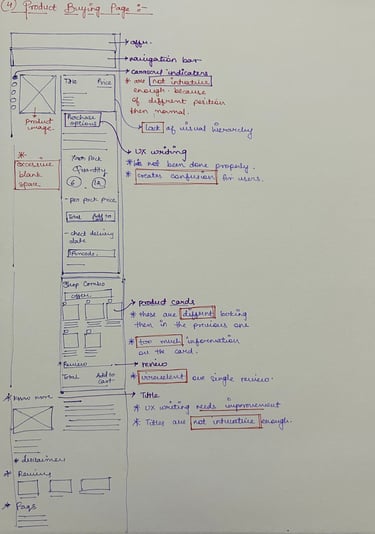 (4) Product Buying Page :-
offer.
navigation bar
carousel indicators
* are not intuitive
enough. because
of different position
then normal.
Title Price
Product
image.
Purchase
options
lack of visual hierarchy
UX writing
* not been done properly.
* creates confusion for users.
*
excessive
blank
space
Pack
Quantity
6 12
- per pack price
Total Add to
- check delivery
date
Pincode.
Shop Combo
offer
product cards
* these are different looking
then in the previous one
* too much information
on the card.
Review
review
* irrevelent one single review.
Total Add to
cart
Title
* Know more
* UX writing needs improvement
* Titles are not intuitive enough.
* disclaimer
* Review
* Faqs